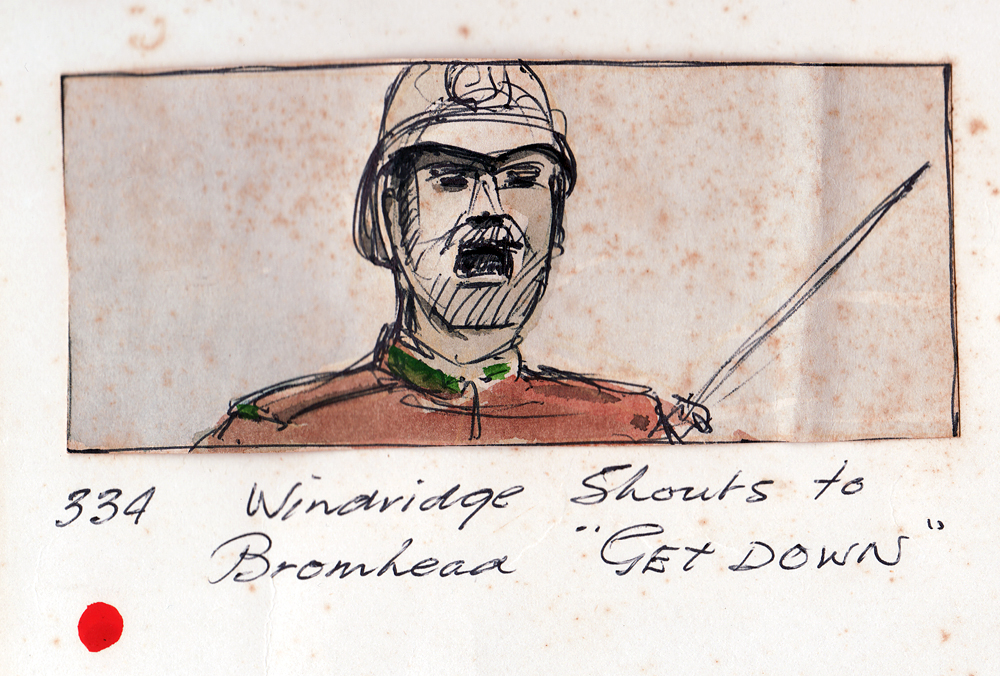 334 Windridge Shouts to
Bromhead "GET DOWN"